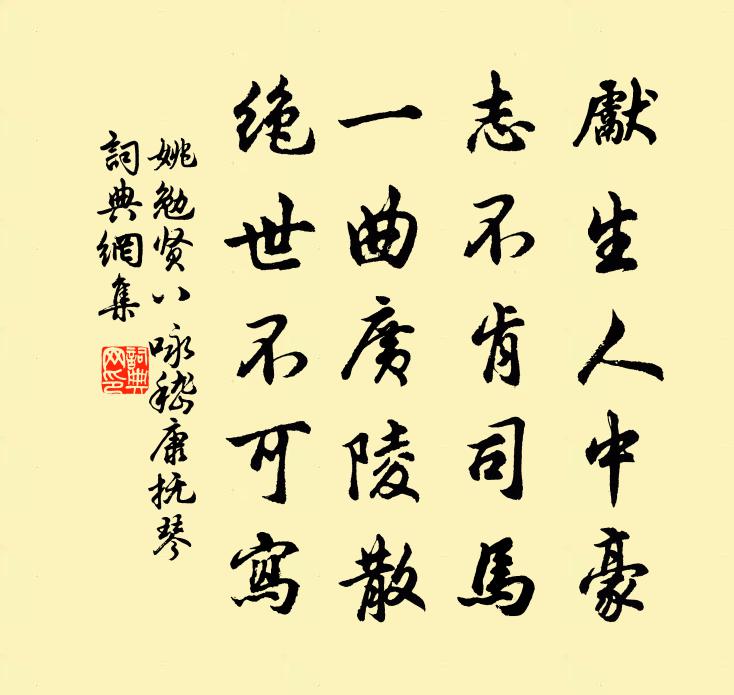 獻生人中豪
志不肯司馬
一曲廣陵散
絶世不可寫
姚勉贤八咏嵇康抚琴
詞典網集
詞典网印